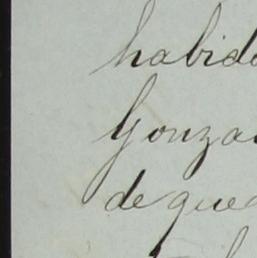 habido
Gonza
de que